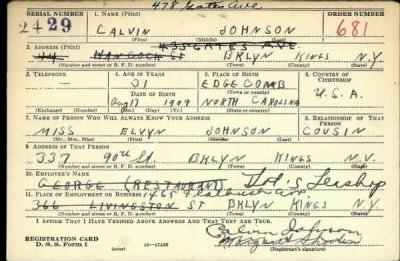 478 Gates Ave
SERIAL NUMBER 1. NAME (Print) ORDER NUMBER
2429 CALVIN JOHNSON 681
(First) (Middle) (Last)
435 GATES AVE.
2. ADDRESS (Print)
44 HANCOCK ST BKLYN KINGS N.Y.
(Number and street or R. F. D. number) (Town) (County) (State)
3. TELEPHONE 4. AGE IN YEARS 5. PLACE OF BIRTH 6. COUNTRY OF CITIZENSHIP
— 31 EDGE COMB
DATE OF BIRTH (Town or county)
Aug 17 1909 NORTH CAROLINA U.S.A.
(Exchange) (Number) (Mo.) (Day) (Yr.) (State or country)
7. NAME OF PERSON WHO WILL ALWAYS KNOW YOUR ADDRESS 8. RELATIONSHIP OF THAT PERSON
MISS ELVYN JOHNSON COUSIN
(Mr., Mrs., Miss) (First) (Middle) (Last)
9. ADDRESS OF THAT PERSON
337 90th St. BKLYN KINGS N.Y.
(Number and street or R. F. D. number) (Town) (County) (State)
10. EMPLOYER'S NAME
GEORGE (RESTAURANT)
11. PLACE OF EMPLOYMENT OR BUSINESS Flatbush Ave
366 LIVINGSTON ST BKLYN KINGS N.Y.
(Number and street or R. F. D. number) (Town) (County) (State)
I AFFIRM THAT I HAVE VERIFIED ABOVE ANSWERS AND THAT THEY ARE TRUE.
Calvin Johnson
REGISTRATION CARD
D. S. S. Form 1 (over) 16—17105 (Registrant's signature)